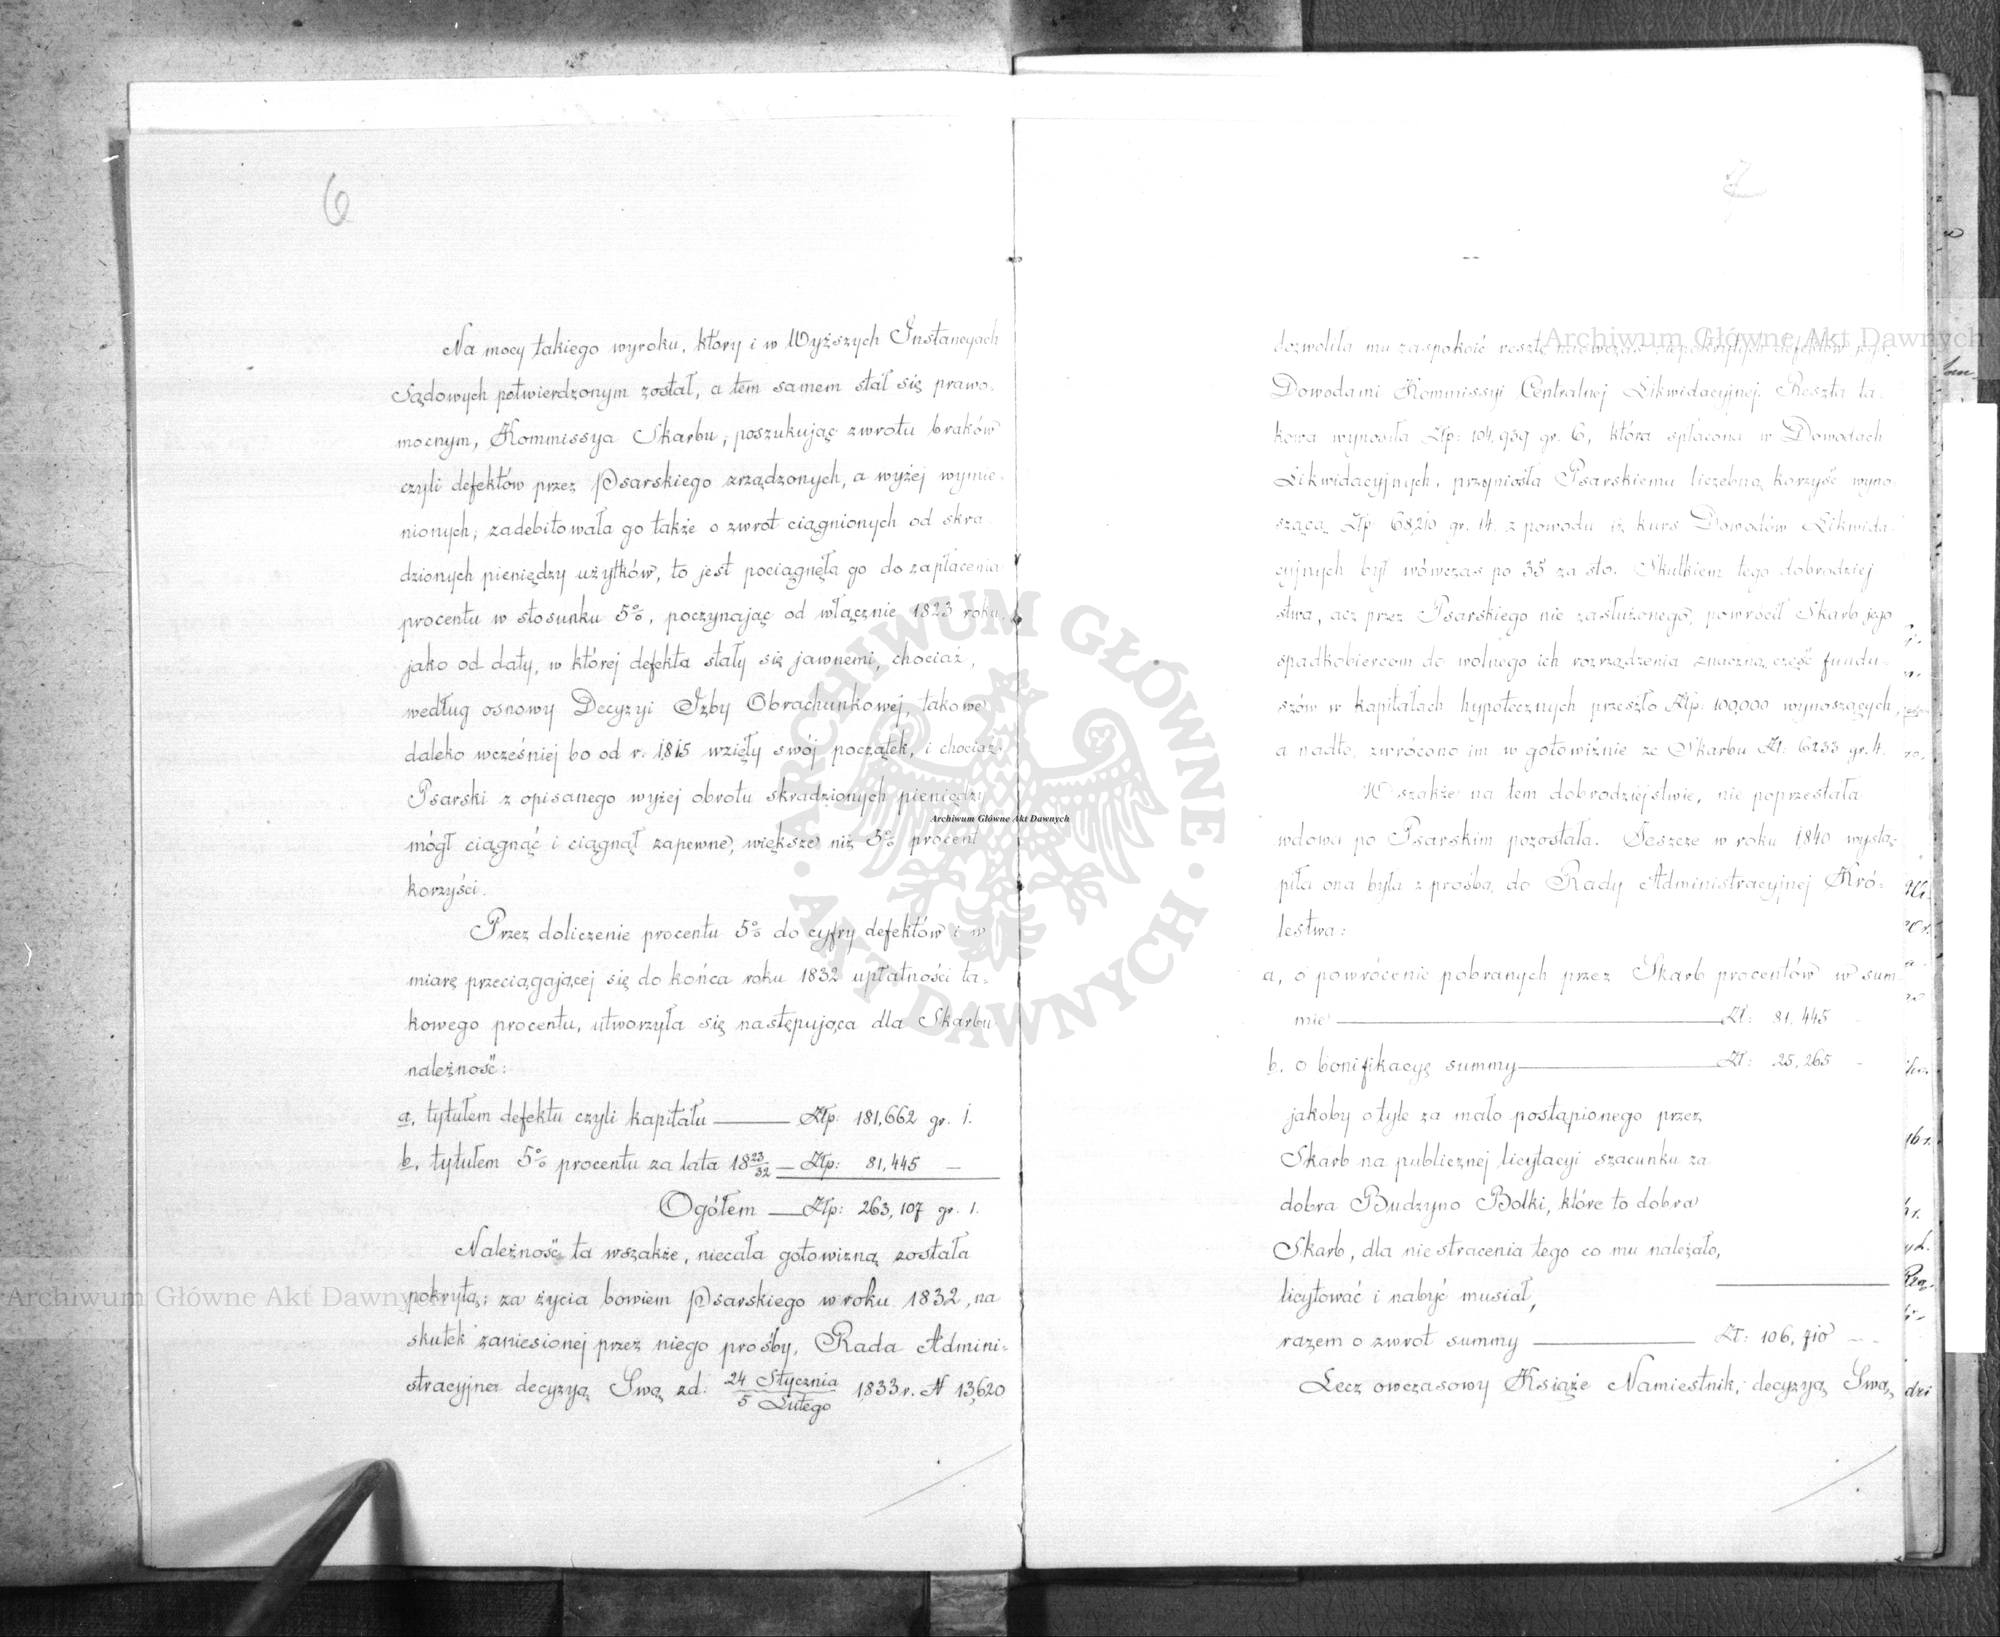 6
Na mocy takiego wyroku, który i w Wyższych Instancyach
Sądowych potwierdzonym został, a tem samem stał się prawo-
mocnym, Kommissya Skarbu, poszukując zwrotu braków
czyli defektów przez Psarskiego zrządzonych, a wyżej wymie-
nionych, zadebitowała go także o zwrot ciągnionych od skra-
dzionych pieniędzy użytków, to jest pociągnęła go do zapłacenia
procentu w stosunku 5%, poczynając od włącznie 1823 roku,
jako od daty, w której defekta stały się jawnemi, chociaż,
według osnowy Decyzyi Izby Obrachunkowej, takowe
daleko wcześniej bo od r. 1815 wzięły swój początek, i chociaż
Psarski z opisanego wyżej obrotu skradzionych pieniędzy
mógł ciągnąć i ciągnął zapewne, większe niż 5% procent
korzyści.
Przez doliczenie procentu 5% do cyfry defektów i w
miarę przeciągającej się do końca roku 1832 upłatności ta-
kowego procentu, utworzyła się następująca dla Skarbu
należność:
a, tytułem defektu czyli kapitału — Złp: 181,662 gr. 1.
b, tytułem 5% procentu za lata 18 23/32 — Złp: 81,445 —
Ogółem — Złp: 263,107 gr. 1.
Należność ta wszakże, niecała gotowizną została
pokrytą; za życia bowiem Psarskiego w roku 1832, na
skutek zaniesionej przez niego prośby, Rada Admini-
stracyjna decyzyą Swą z d: 24 Stycznia/5 Lutego 1833 r. N 13,620
7
dozwoliła mu zaspokoić resztę naówczas niepokrytych defektów
Dowodami Kommissyi Centralnej Likwidacyjnej. Reszta ta-
kowa wynosiła Złp: 104,939 gr. 6, która spłacona w Dowodach
Likwidacyjnych, przyniosła Psarskiemu liczebną korzyść wyno-
szącą Złp 68210 gr. 14. z powodu iż kurs Dowodów Likwida-
cyjnych był wówczas po 35 za sto. Skutkiem tego dobrodziej
stwa, acz przez Psarskiego nie zasłużonego, powrócił Skarb jego
spadkobiercom do wolnego ich rozrządzenia znaczną część fundu-
szów w kapitałach hypotecznych przeszło Złp: 100,000 wynoszących,
a nadto, zwrócono im w gotowiźnie ze Skarbu Zł: 6233 gr. 4.
Wszakże na tem dobrodziejstwie, nie poprzestała
wdowa po Psarskim pozostała. Jeszcze w roku 1840 wystą-
piła ona była z prośbą do Rady Administracyjnej Kró-
lestwa:
a, o powrócenie pobranych przez Skarb procentów w sum-
mie — Zł: 81,445 —
b, o bonifikacyę summy — Zł: 25,265 —
jakoby o tyle za mało postąpionego przez
Skarb na publicznej licytacyi szacunku za
dobra Budzyno Bolki, które to dobra
Skarb, dla niestracenia tego co mu należało,
licytować i nabyć musiał,
razem o zwrot summy — Zł: 106,710 —
Lecz owczasowy Książe Namiestnik, decyzyą Swą
Archiwum Główne Akt Dawnych
Archiwum Główne Akt Dawnych
Archiwum Główne Akt Dawnych
ARCHIWUM GŁÓWNE · AKT DAWNYCH ·